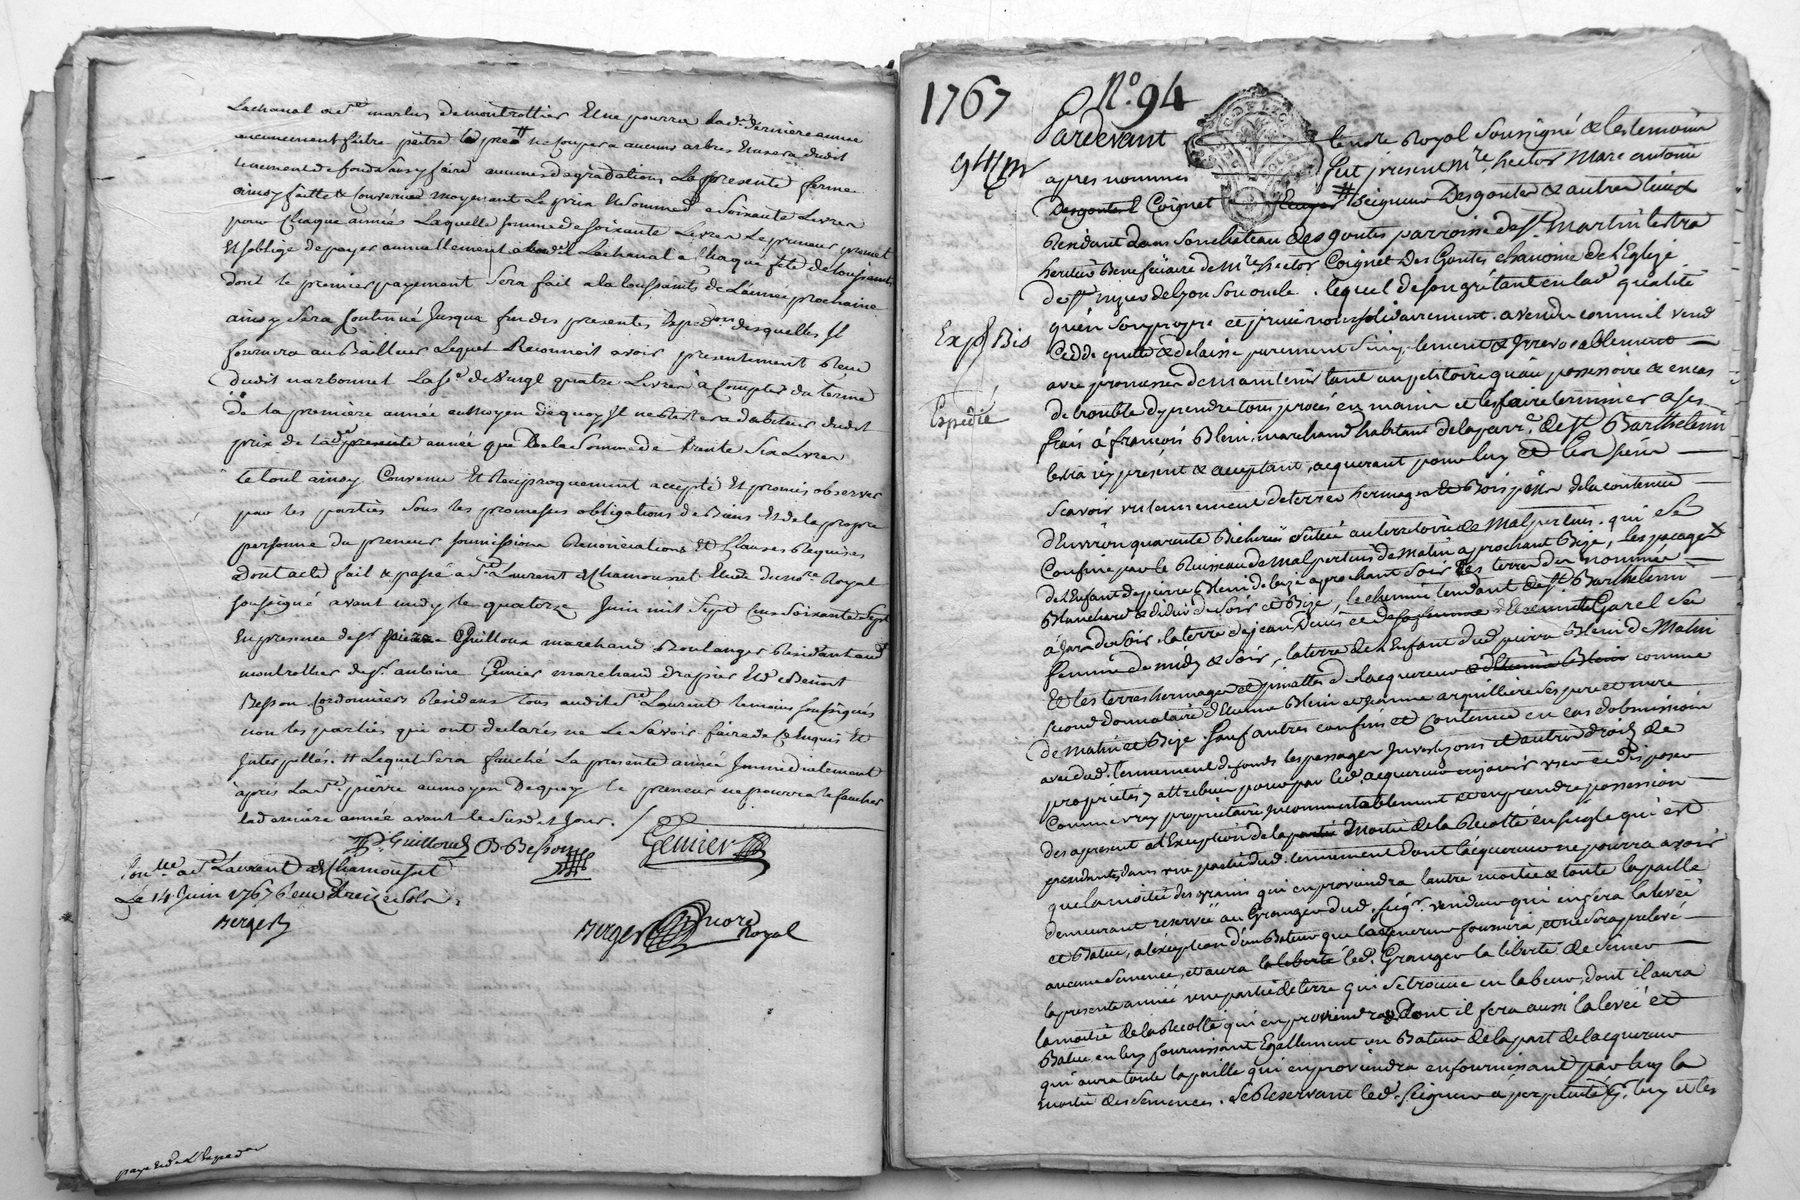 Lachanal a St marlis de montrottier Et ne pourra lad. derniere année
aucunement faire paitre le pré ne coupera aucuns arbres Et usera dudit
tenement de fonds sans y faire aucunes degradations La presente ferme
ainsy faitte & convenue moyenant Le prix & somme de soixante Livres
pour chaque année Laquelle somme de soixante Livres Le preneur promet
Et s'oblige de payer annuellement aud. Lachanal a chaque fête de toussaints
dont le premier payement sera fait a la toussaints de L'année prochaine
ainsy sera continué jusqua fin des presentes desquelles Il
fournira au Bailleur Lequel Reconnoit avoir presentement Receu
dudit narbonnet La s.e de vingt quatre Livres à compter du terme
de la premiere année au moyen de quoy Il ne restera debiteur dudit
prix de lad. presente année que de la somme de trente six Livres
le tout ainsy Convenu Et Reciproquement accepté Et promis observer
par les parties sous les promesses obligations de Biens Et de la propre
personne du preneur soumissions Renonciations Et Clauses Requises
Dont acte fait & passé a St Laurent de Chamousset Etude du no.re Royal
soussigné avant midy le quatorze Juin mil sept cens soixante sept
En presence de sr. pierre Guilloux marchand Boulanger Residant aud.
montrottier de sr. antoine Genier marchand drapier Et Benoit
Besson Cordonniers Residens tous audit St Laurent temoins soussignés
non les parties qui ont declarés ne Le savoir faire de ce Enquis Et
Interpellés. # Lequel sera fauché La presente année Immediatement
après La St pierre au moyen de quoy le preneur ne pourra le faucher
la derniere année avant le susdit Jour.
P. Guilloud B. Besson Genier
Con.lle a St Laurent de Chamousset
Le 14 Juin 1767 Receu treize sols
Berger
Berger nore Royal
1767
N.o 94
Pardevant le no.re Royal soussigné & les temoins
apres nommés fut present M.re hector Marc antoine
Desgouttes Coignet # Seigneur Desgoutes & autres lieux
Residant dans son chateau des goutes parroisse de St. Martin lestra
heritier Beneficiaire de M.re hector Coignet Des Goutes chanoine de l'Eglise
de St nizier de lyon son oncle. lequel de son gré tant en lad. qualité
qu'en son propre et privé nom solidairement. a vendu comme il vend
Cedde quitte & delaisse purement simplement & Irrevocablement
avec promesse de maintenir tant au petitoire qu'au possessoire & en cas
de trouble d'y prendre tous procés en main et les faire terminer a ses
frais à françois Blein marchand habitant de la parr.e de St Barthelemi
lestra icy présent & acceptant, acquerant pour luy et les siens
Scavoir un tennement de terres hermages et Bois pins de la contenue
d'Environ quarente Bicherées située au territoire de Malpertuis. qui se
Confine par le Ruisseau de Malpertuis de matin aprochant Bize, les pacages
de l'Enfant de pierre Bleni de bize aprochant soir les terres des nommés
Blanchard & didier de soir et Bize, le chemin tendant de St Barthelemi
à Jas de soir la terre de jean Denis et de Garel sa
femme de midy & soir, la terre de l'Enfant dud. pierre Bleni de Matin
Et les terres hermages et pinattes d. lacquereur comme
second donnataire d'Etienne Bleni et jeanne arquilliere ses pere et mere
de matin et Bize. sauf autres confins et contenue en cas d'obmission
avec dud. tennement de fonds les passages Inverssions et autres droits de
proprietés y attribués pour par led. acquereur en jouir user et Disposer
Comme vray propriétaire Incommutablement et en prendre possession
des apresent a l'Exception de la moitié de la Recolte en seigle qui est
pendante dans une partie dud. tennement dont lacquereur ne pourra avoir
que la moitié des grains qui en proviendra l'autre moitié & toute la paille
demeurant reservée au Granger dud. seig.r vendeur qui en fera la levée
et Batue, a l'exception d'un Bateur que lacquereur fournira, et ne sera prelevé
aucune semence, et aura led. Granger la liberté de semer
la presente année une partie de terre qui se trouve en labeur, dont il aura
la moitié de la Recolte qui en proviendra dont il fera aussi la levée et
Batue en luy fournissant Egallement un Bateur de la part de lacquereur
qui aura toute la paille qui en proviendra en fournissant par luy la
moitié des semences. se Reservant led. seigneur à perpetuité luy et les
Expé Bis
Expedié